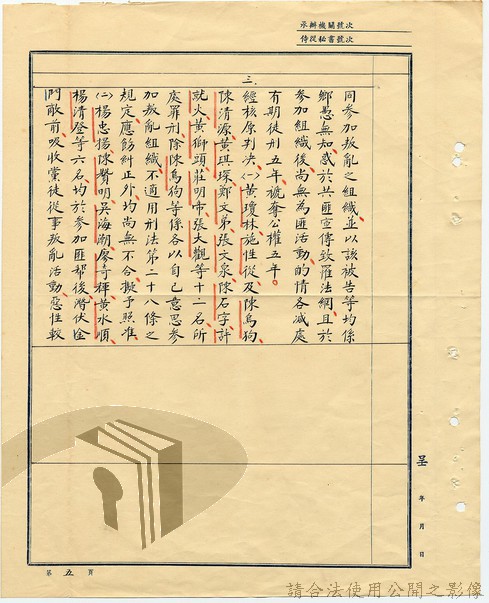 承辦機關號次
侍從秘書號次
同參加叛亂之組織並以該被告等均係
鄉愚無知惑於共匪宣傳致罹法網且於
參加組織後尚無為匪活動的情各減處
有期徒刑五年褫奪公權五年。
三、經核原判決㈠黃瓊林施性從及陳為狗
陳清源黃琪琛鄭文弟張文泉陳石字許
就火黃獅頭莊明市張大觀等十二名所
處罪刑除陳為狗等係各以自己意思參
加叛亂組織不適用刑法第二十八條之
規定應飭糾正外均尚無不合擬予照准
㈡楊忠揚陳贊明吳海潮廖奇祥黃水順
楊清登等六名均於參加匪幫後潛伏金
門敵前吸收黨徒從事叛亂活動惡性較
呈
年
月
日
第五頁
請合法使用公開之影像